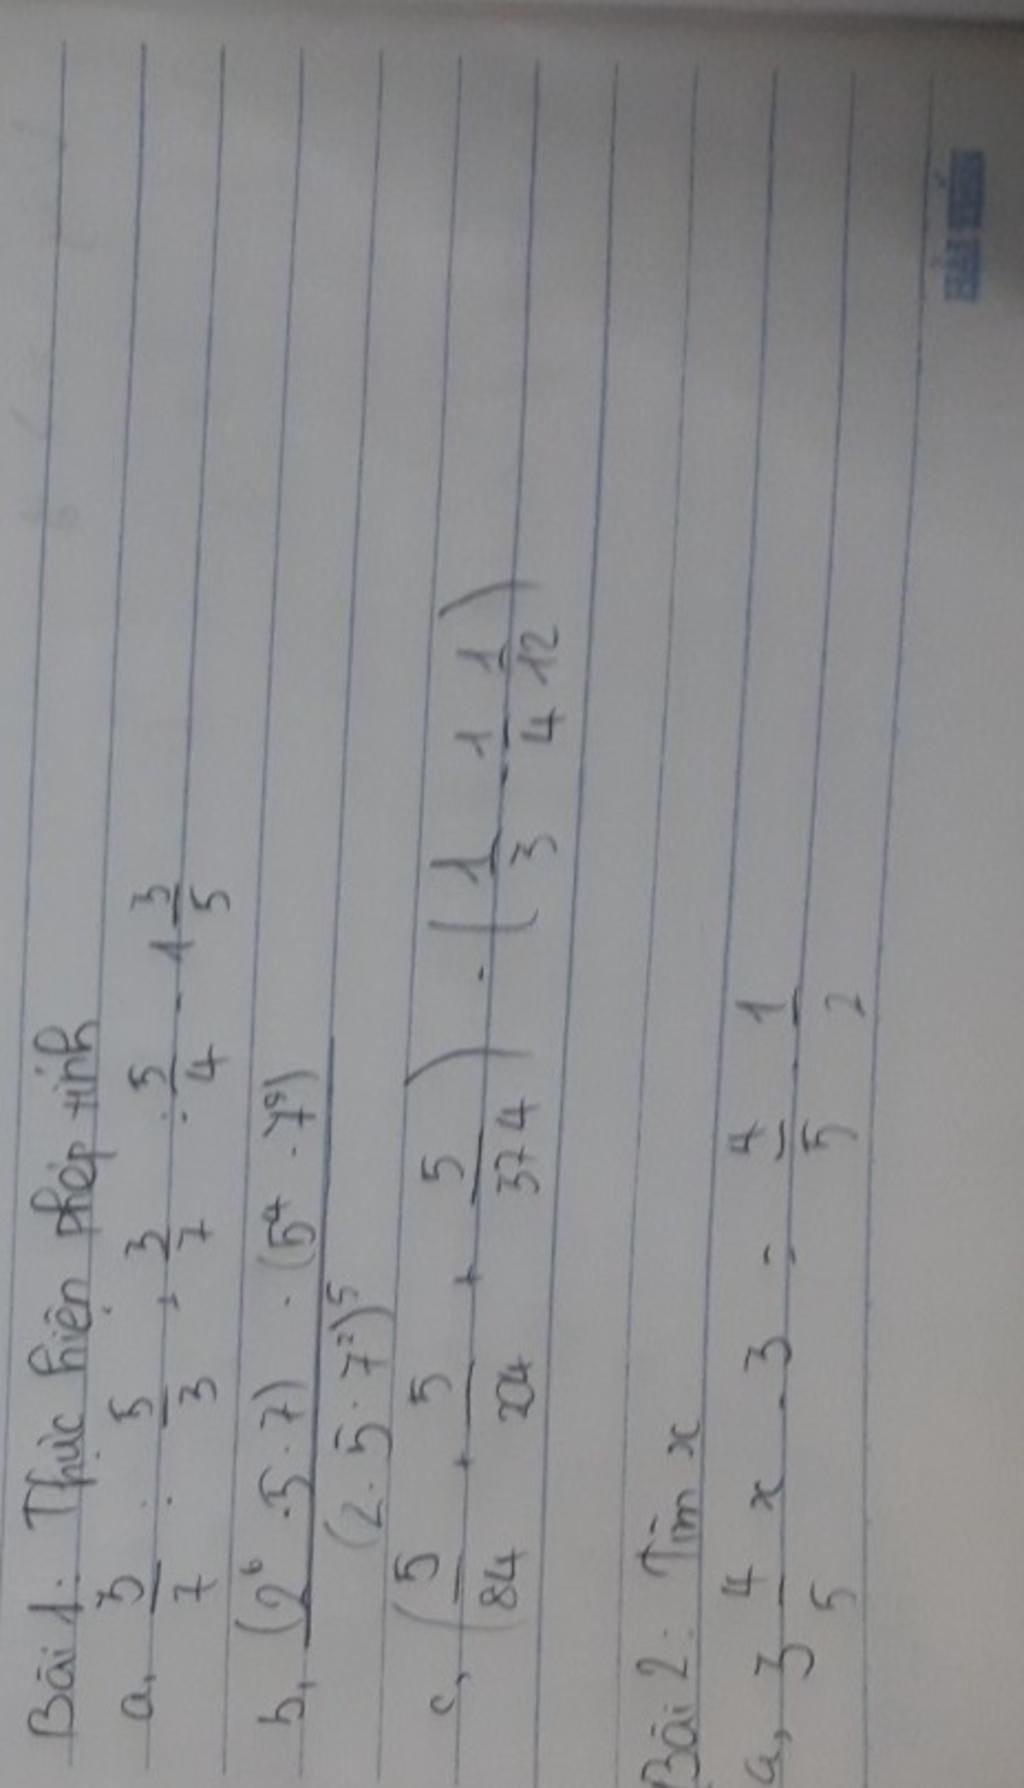 Bài 1: Thực hiện phép tính
a, 3/7 : 5/3 + 3/7 : 5/4 - 1 3/5
b, (2^6 . 5 . 7) . (5^4 . 7^9)
(2 . 5 . 7^2)^5
c, (5/84 + 5/204 + 5/374) . (1/3 - 1/4 - 1/12)
Bài 2: Tìm x
a, 3 4/5 x . 3 = 4/5 - 1/2
HẢI TIẾN